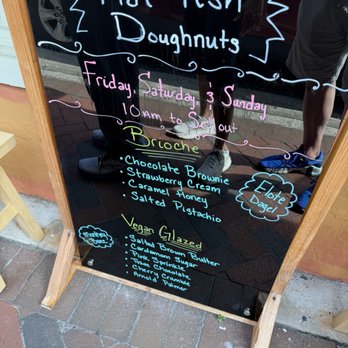 Doughnuts
Friday, Saturday, & Sunday
10am to Sell out
Brioche
• Chocolate Brownie
• Strawberry Cream
• Caramel Honey
• Salted Pistachio
Vegan Glazed
• Salted Brown Budher
• Cardamom Sugar
• Pink Sprinkle
• Triple Chocolate
• Cherry Crumble
• Arnold Palmer